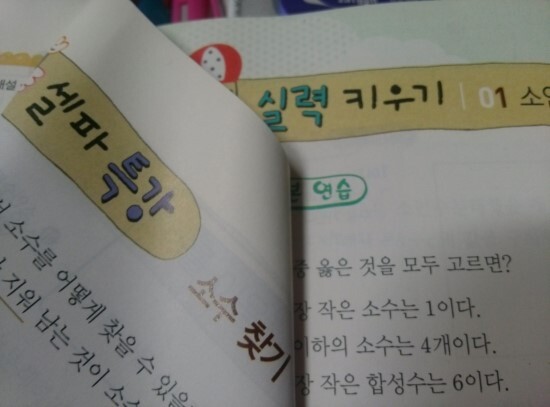 해설
셀파 특강
소수 찾기
서 소수를 어떻게 찾을 수 있을
지워 남는 것이 소수
실력 키우기 01 소인
본 연습
중 옳은 것을 모두 고르면?
장 작은 소수는 1이다.
이하의 소수는 4개이다.
장 작은 합성수는 6이다.